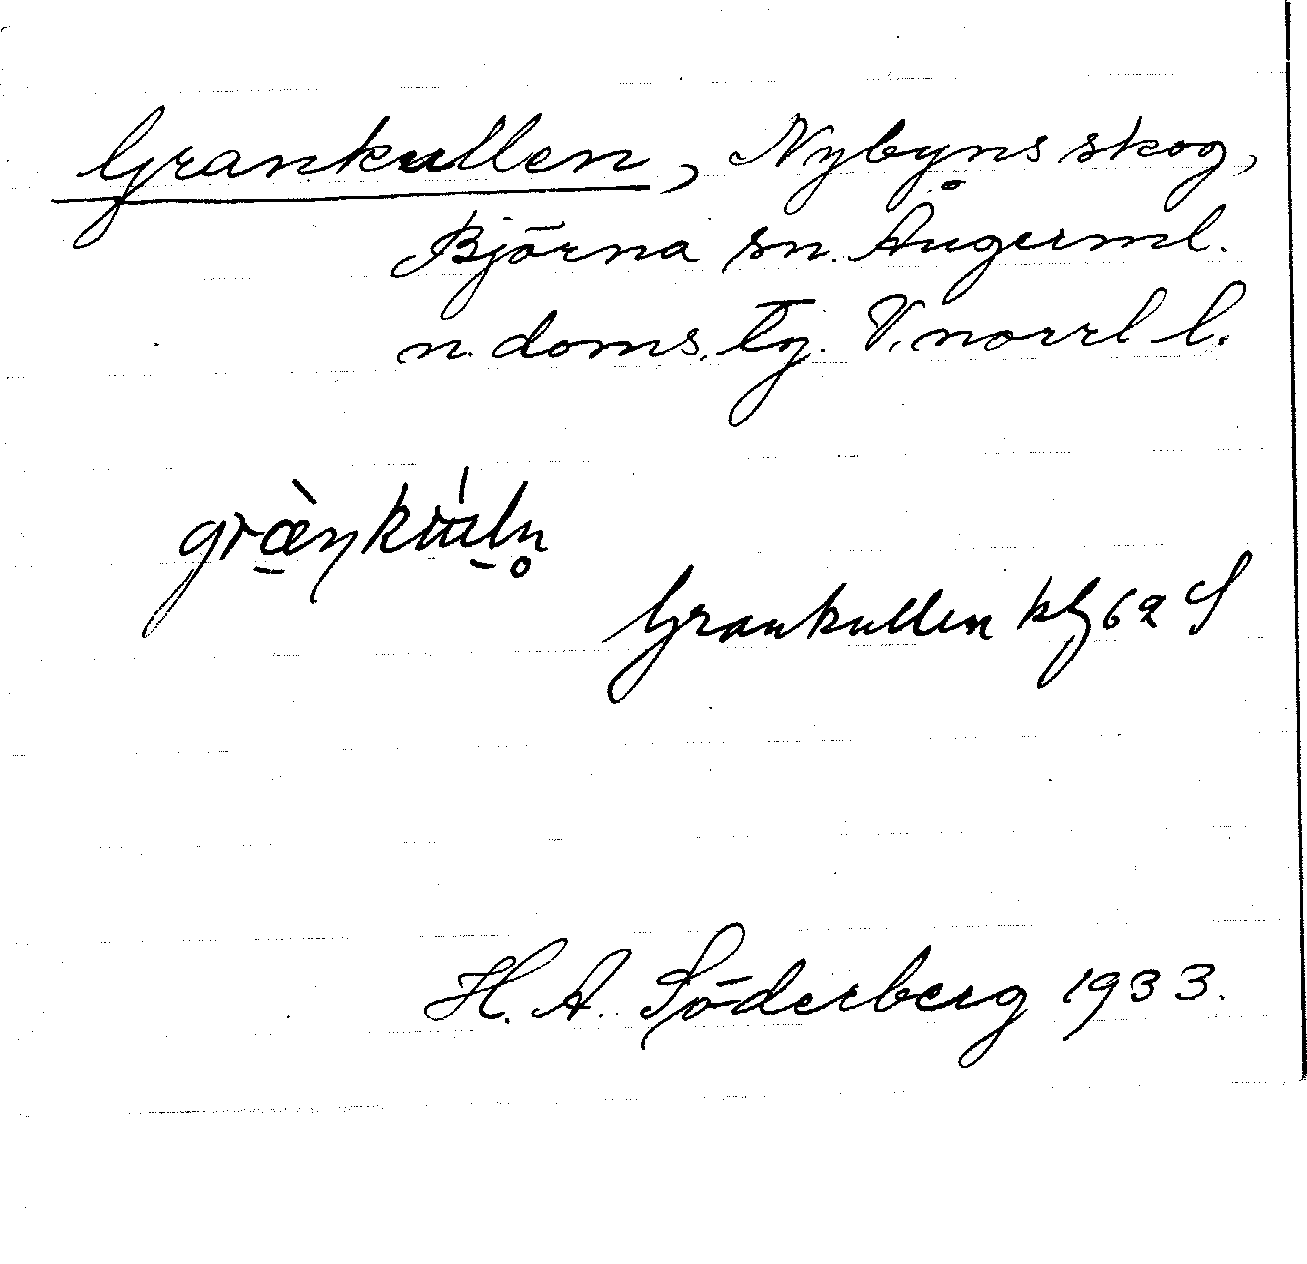 Grankullen, Nybyns skog,
Björna sn. Ångerml.
n. doms. tg. V. norrl l.
græ̠̀ŋkʉ̠́ln̥
Grankullen kbl 62 S
H. A. Söderberg 1933.